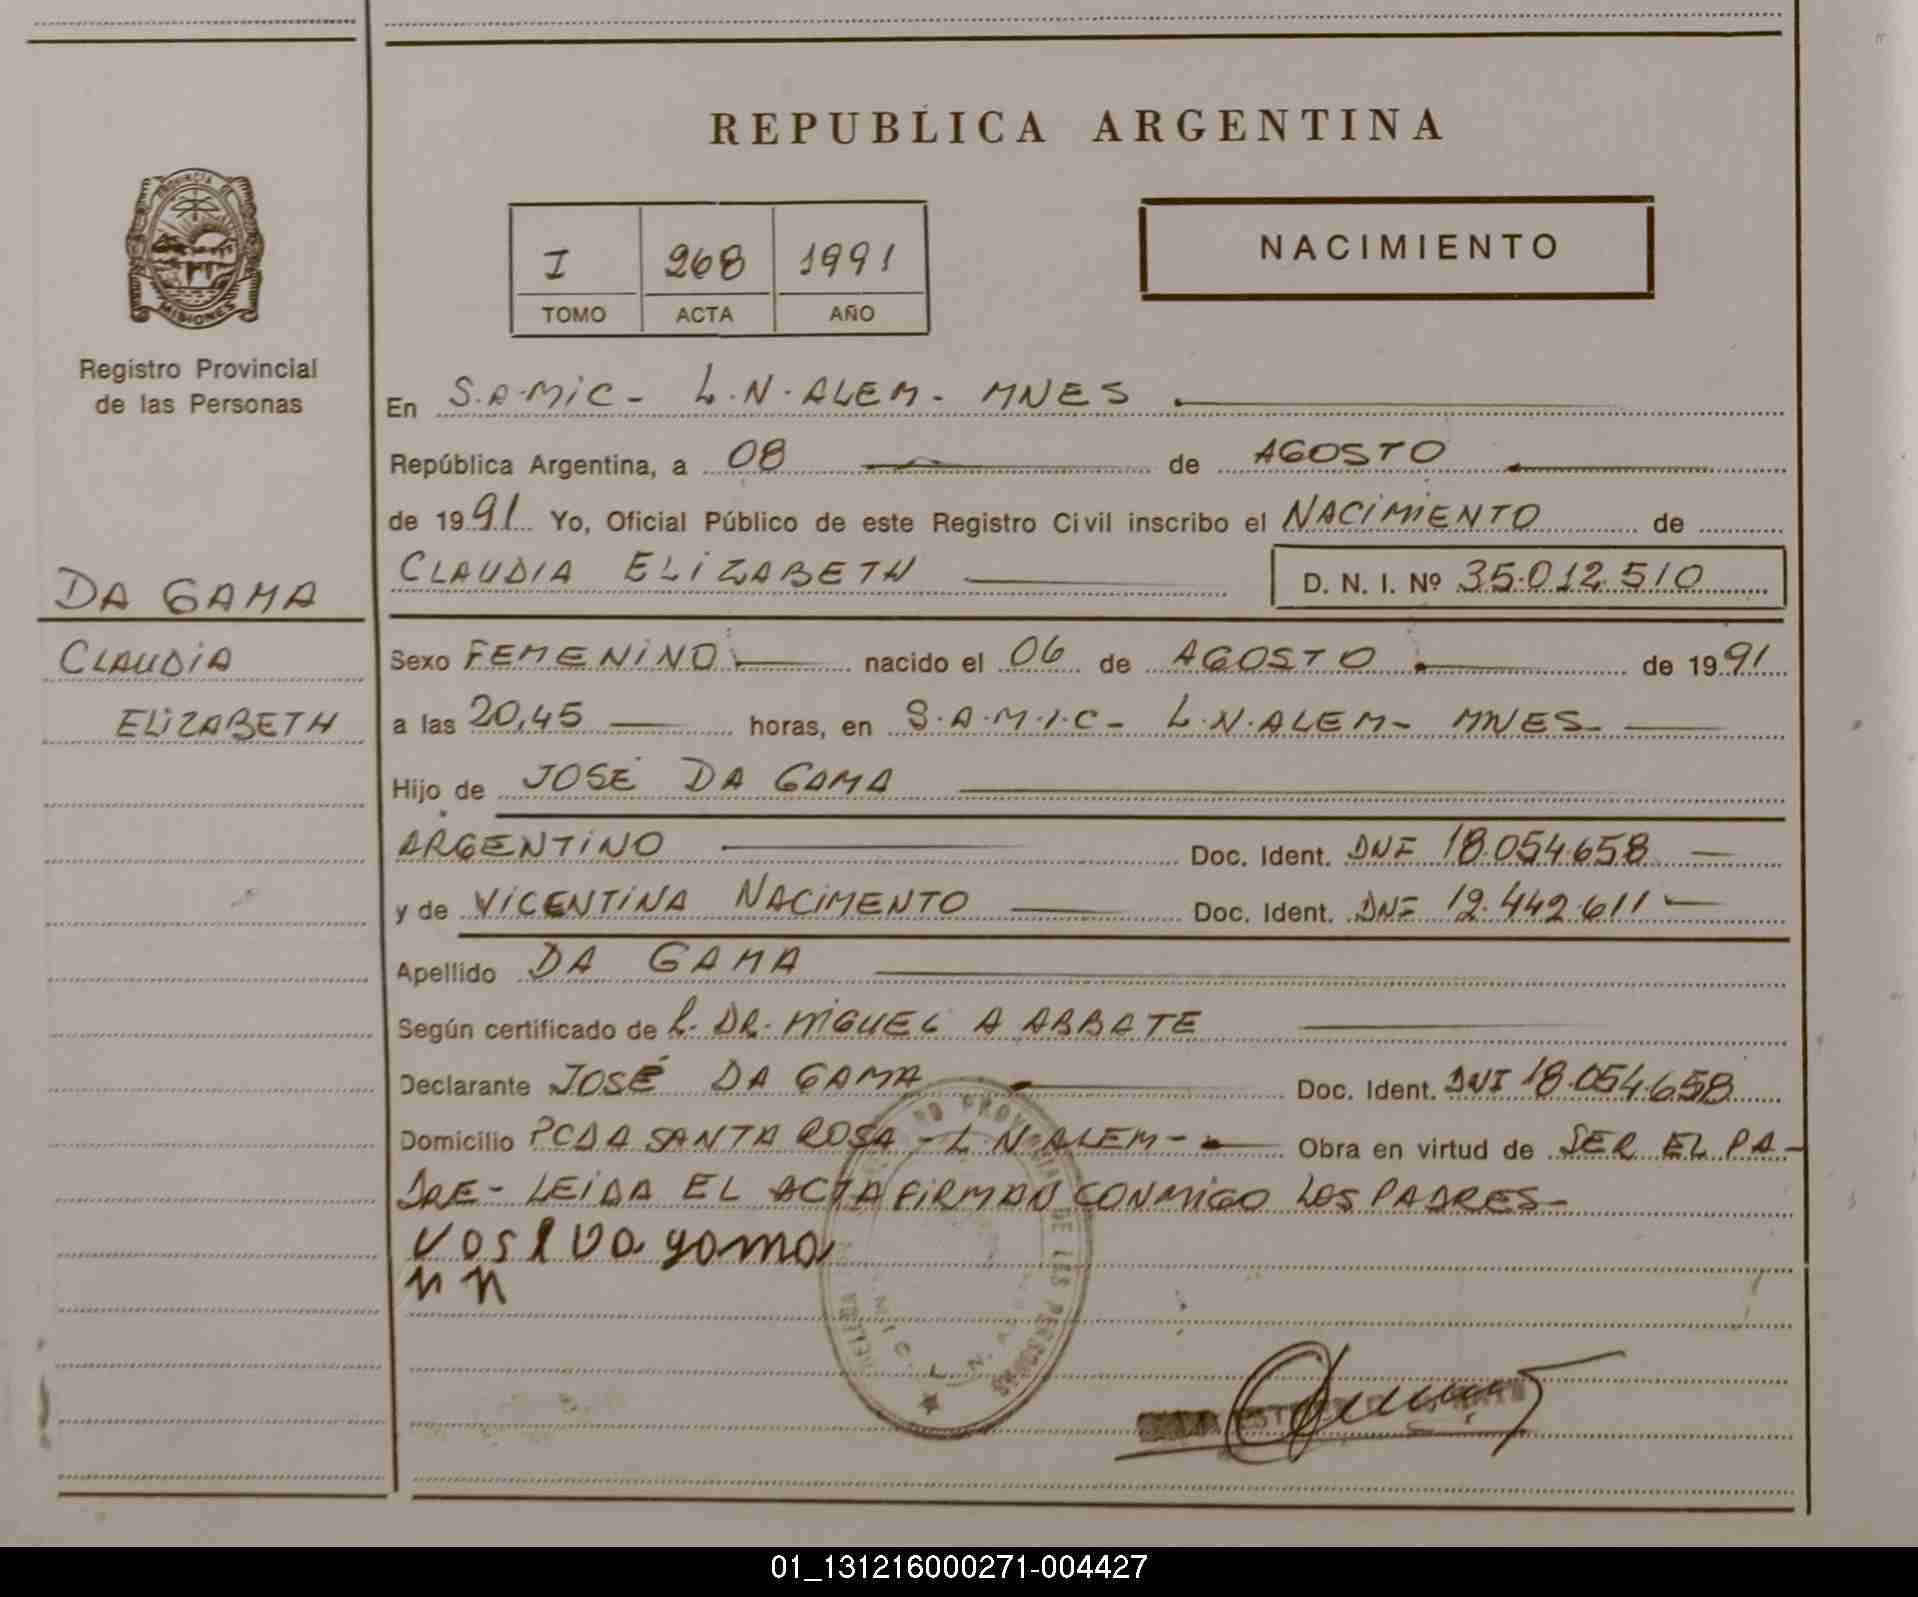 REPUBLICA ARGENTINA
PROVINCIA DE
MISIONES
Registro Provincial
de las Personas
I 268 1991
TOMO ACTA AÑO
NACIMIENTO
En S.A.MIC - L.N.ALEM - MNES
República Argentina, a 08 de AGOSTO
de 1991 Yo, Oficial Público de este Registro Civil inscribo el NACIMIENTO de
CLAUDIA ELIZABETH D. N. I. Nº 35.012.510
DA GAMA
CLAUDIA
ELIZABETH
Sexo FEMENINO nacido el 06 de AGOSTO de 1991
a las 20,45 horas, en S.A.M.I.C - L.N.ALEM - MNES -
Hijo de JOSÉ DA GAMA
ARGENTINO Doc. Ident. DNI 18.054.658
y de VICENTINA NACIMENTO Doc. Ident. DNI 12.442.611
Apellido DA GAMA
Según certificado de L. DR. MIGUEL A ABBATE
Declarante JOSÉ DA GAMA Doc. Ident. DNI 18.054.658
Domicilio PCDA SANTA ROSA - L.N.ALEM - Obra en virtud de SER EL PA-
DRE - LEIDA EL ACTA FIRMAN CONMIGO LOS PADRES -
DE LAS PERSONAS
01_131216000271-004427